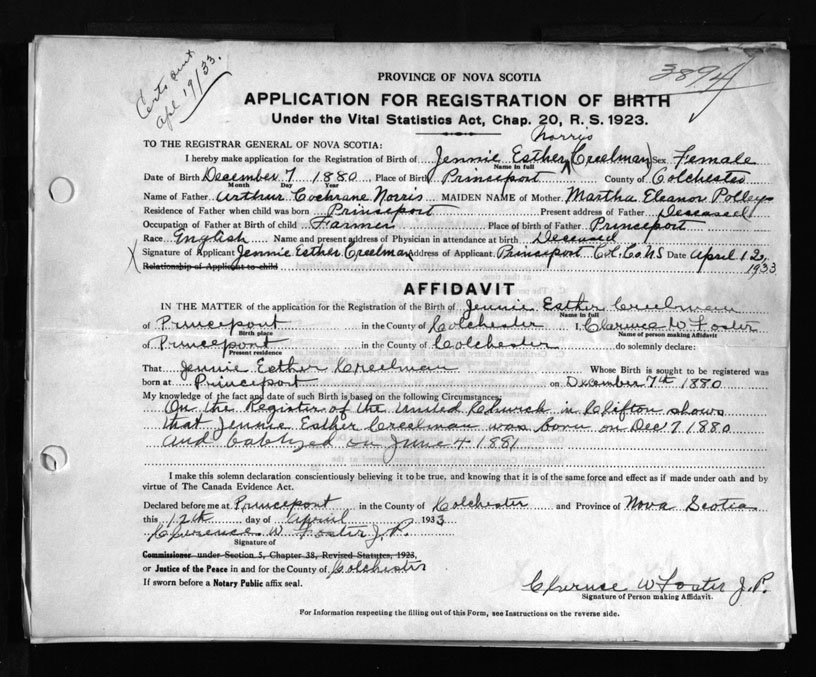 Certs sent
Apl 19/33.
3894
PROVINCE OF NOVA SCOTIA
APPLICATION FOR REGISTRATION OF BIRTH
Under the Vital Statistics Act, Chap. 20, R. S. 1923.
TO THE REGISTRAR GENERAL OF NOVA SCOTIA:
Norris
I hereby make application for the Registration of Birth of Jennie Esther Creelman Sex Female
Name in full
Date of Birth December 7 1880 Place of Birth Princeport County of Colchester
Month Day Year
Name of Father Arthur Cochrane Norris MAIDEN NAME of Mother Martha Eleanor Polleys
Residence of Father when child was born Princeport Present address of Father Deseased
Occupation of Father at Birth of child Farmer Place of birth of Father Princeport
Race English Name and present address of Physician in attendance at birth Deceased
X Signature of Applicant Jennie Esther Creelman Address of Applicant Princeport Col. Co. NS Date April 12,
Relationship of Applicant to child 1933
AFFIDAVIT
IN THE MATTER of the application for the Registration of the Birth of Jennie Esther Creelman
Name in full
of Princeport in the County of Colchester I, Clarence W Foster
Birth place Name of person making Affidavit
of Princeport in the County of Colchester do solemnly declare:
Present residence
That Jennie Esther Creelman Whose Birth is sought to be registered was
born at Princeport on December 7th 1880
My knowledge of the fact and date of such Birth is based on the following Circumstances
On the Register of the United Church in Clifton shows
that Jennie Esther Creelman was born on Dec 7 1880
and babtized on June 4 1881
I make this solemn declaration conscientiously believing it to be true, and knowing that it is of the same force and effect as if made under oath and by
virtue of The Canada Evidence Act.
Declared before me at Princeport in the County of Colchester and Province of Nova Scotia
this 12th day of April 1933
Clarence W. Foster J.P.
Signature of
Commissioner under Section 5, Chapter 38, Revised Statutes, 1923,
or Justice of the Peace in and for the County of Colchester
If sworn before a Notary Public affix seal.
Clarence W Foster J.P.
Signature of Person making Affidavit.
For Information respecting the filling out of this Form, see Instructions on the reverse side.